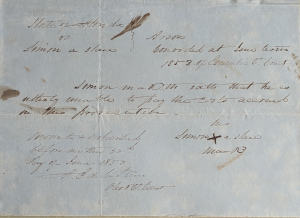 State of Florida } Arson
vs
Simon a slave } Convicted at June term
1853 of Circuit Court
Simon maketh oath that he is
utterly unable to pay the costs accrued
in this prosecution
his
Simon X a slave
mark
Sworn to & subscribed
before me this
day of June 1853
Clerk